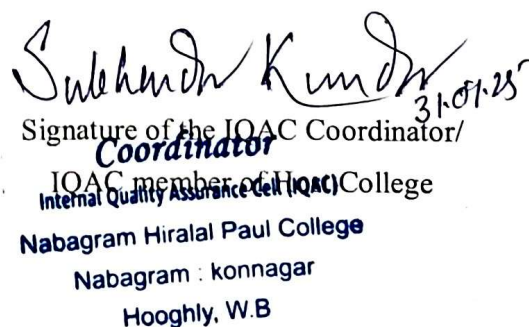 Sukhendu Kundu
31.01.25
Signature of the IQAC Coordinator/
Coordinator
IQAC member of Host College
Internal Quality Assurance Cell (IQAC)
Nabagram Hiralal Paul College
Nabagram : konnagar
Hooghly, W.B